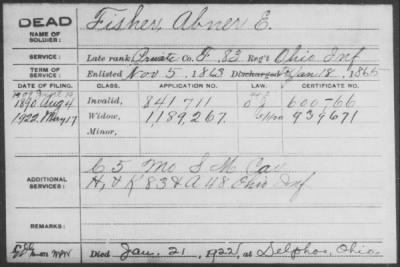 DEAD
NAME OF SOLDIER: Fisher, Abner E.
SERVICE: Late rank, Private Co. F, 83 Reg't Ohio Inf
TERM OF SERVICE: Enlisted Nov 5, 1863 Discharged Jan 18, 1865
DATE OF FILING. CLASS. APPLICATION NO. LAW. CERTIFICATE NO.
1890 Aug 4 Invalid, 841711 600766
1922 May 17 Widow, 1,189,267 939671
Minor,
ADDITIONAL SERVICES: C 5 Mo S M Cav
H, & K 83 & A 48 Ohio Inf
REMARKS:
Died Jan. 21, 1922, at Delphos, Ohio.